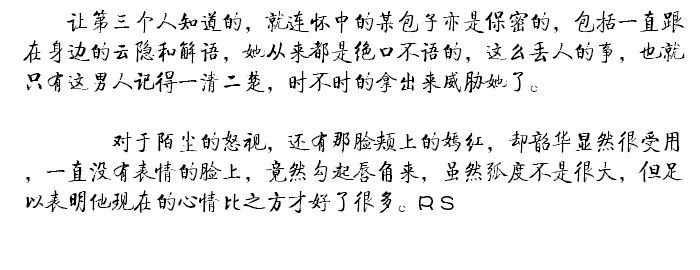 让第三个人知道的，就连怀中的某包子亦是保密的，包括一直跟
在身边的云隐和解语，她从来都是绝口不语的，这么丢人的事，也就
只有这男人记得一清二楚，时不时的拿出来威胁她了。
对于陌尘的怒视，还有那脸颊上的嫣红，却韶华显然很受用
，一直没有表情的脸上，竟然勾起唇角来，虽然弧度不是很大，但足
以表明他现在的心情比之方才好了很多。RS